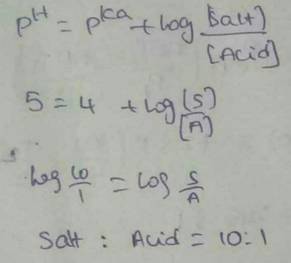 pH = pKa + log [Salt]/[Acid]
5 = 4 + log [S]/[A]
log 10/1 = log S/A
Salt : Acid = 10:1